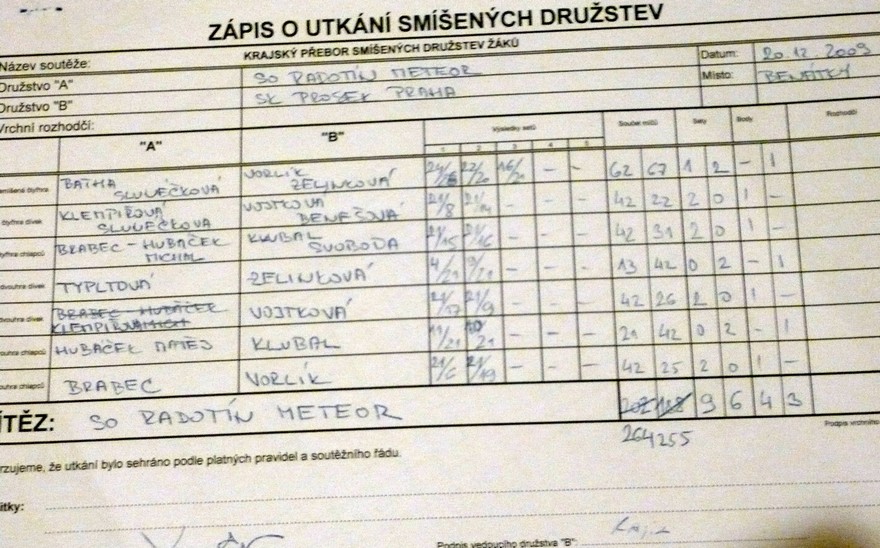 ZÁPIS O UTKÁNÍ SMÍŠENÝCH DRUŽSTEV
Název soutěže: KRAJSKÝ PŘEBOR SMÍŠENÝCH DRUŽSTEV ŽÁKŮ Datum: 20.12.2009
Družstvo "A" SO RADOTÍN METEOR Místo: BENÁTKY
Družstvo "B" SK PROSEK PRAHA
Vrchní rozhodčí:
"A" "B" Výsledky setů Součet míčů Sety Body Rozhodčí
1 2 3 4 5
BAŤHA SLUNEČKOVÁ VORLÍK ZELINKOVÁ 22/20 16/21 - - 62 67 1 2 - 1
čtyřhra dívek KLEMPÍŘOVÁ SLUNEČKOVÁ VOJTKOVÁ BENEŠOVÁ 21/8 21/14 - - - 42 22 2 0 1 -
BRABEC - HUBÁČEK MICHAL KLUBAL SVOBODA 21/15 21/16 - - - 42 31 2 0 1 -
dvouhra dívek TYPLTOVÁ ZELINKOVÁ 4/21 9/21 - - - 13 42 0 2 - 1
dvouhra dívek BRABEC - HUBÁČEK VOJTKOVÁ 21/17 21/9 - - - 42 26 2 0 1 -
HUBÁČEK MATĚJ KLUBAL 11/21 10/21 - - - 21 42 0 2 - 1
BRABEC VORLÍK 21/6 21/19 - - - 42 25 2 0 1 -
ÍTĚZ: SO RADOTÍN METEOR 9 6 4 3
264 255
Podpis vrchního
rzujeme, že utkání bylo sehráno podle platných pravidel a soutěžního řádu.
itky:
Podpis vedoucího družstva "B":